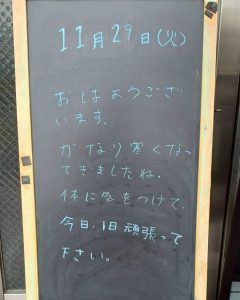 11月29日(火)
おはようござ
います。
かなり寒くなっ
てきましたね。
体に気をつけて、
今日、1日頑張って
下さい。